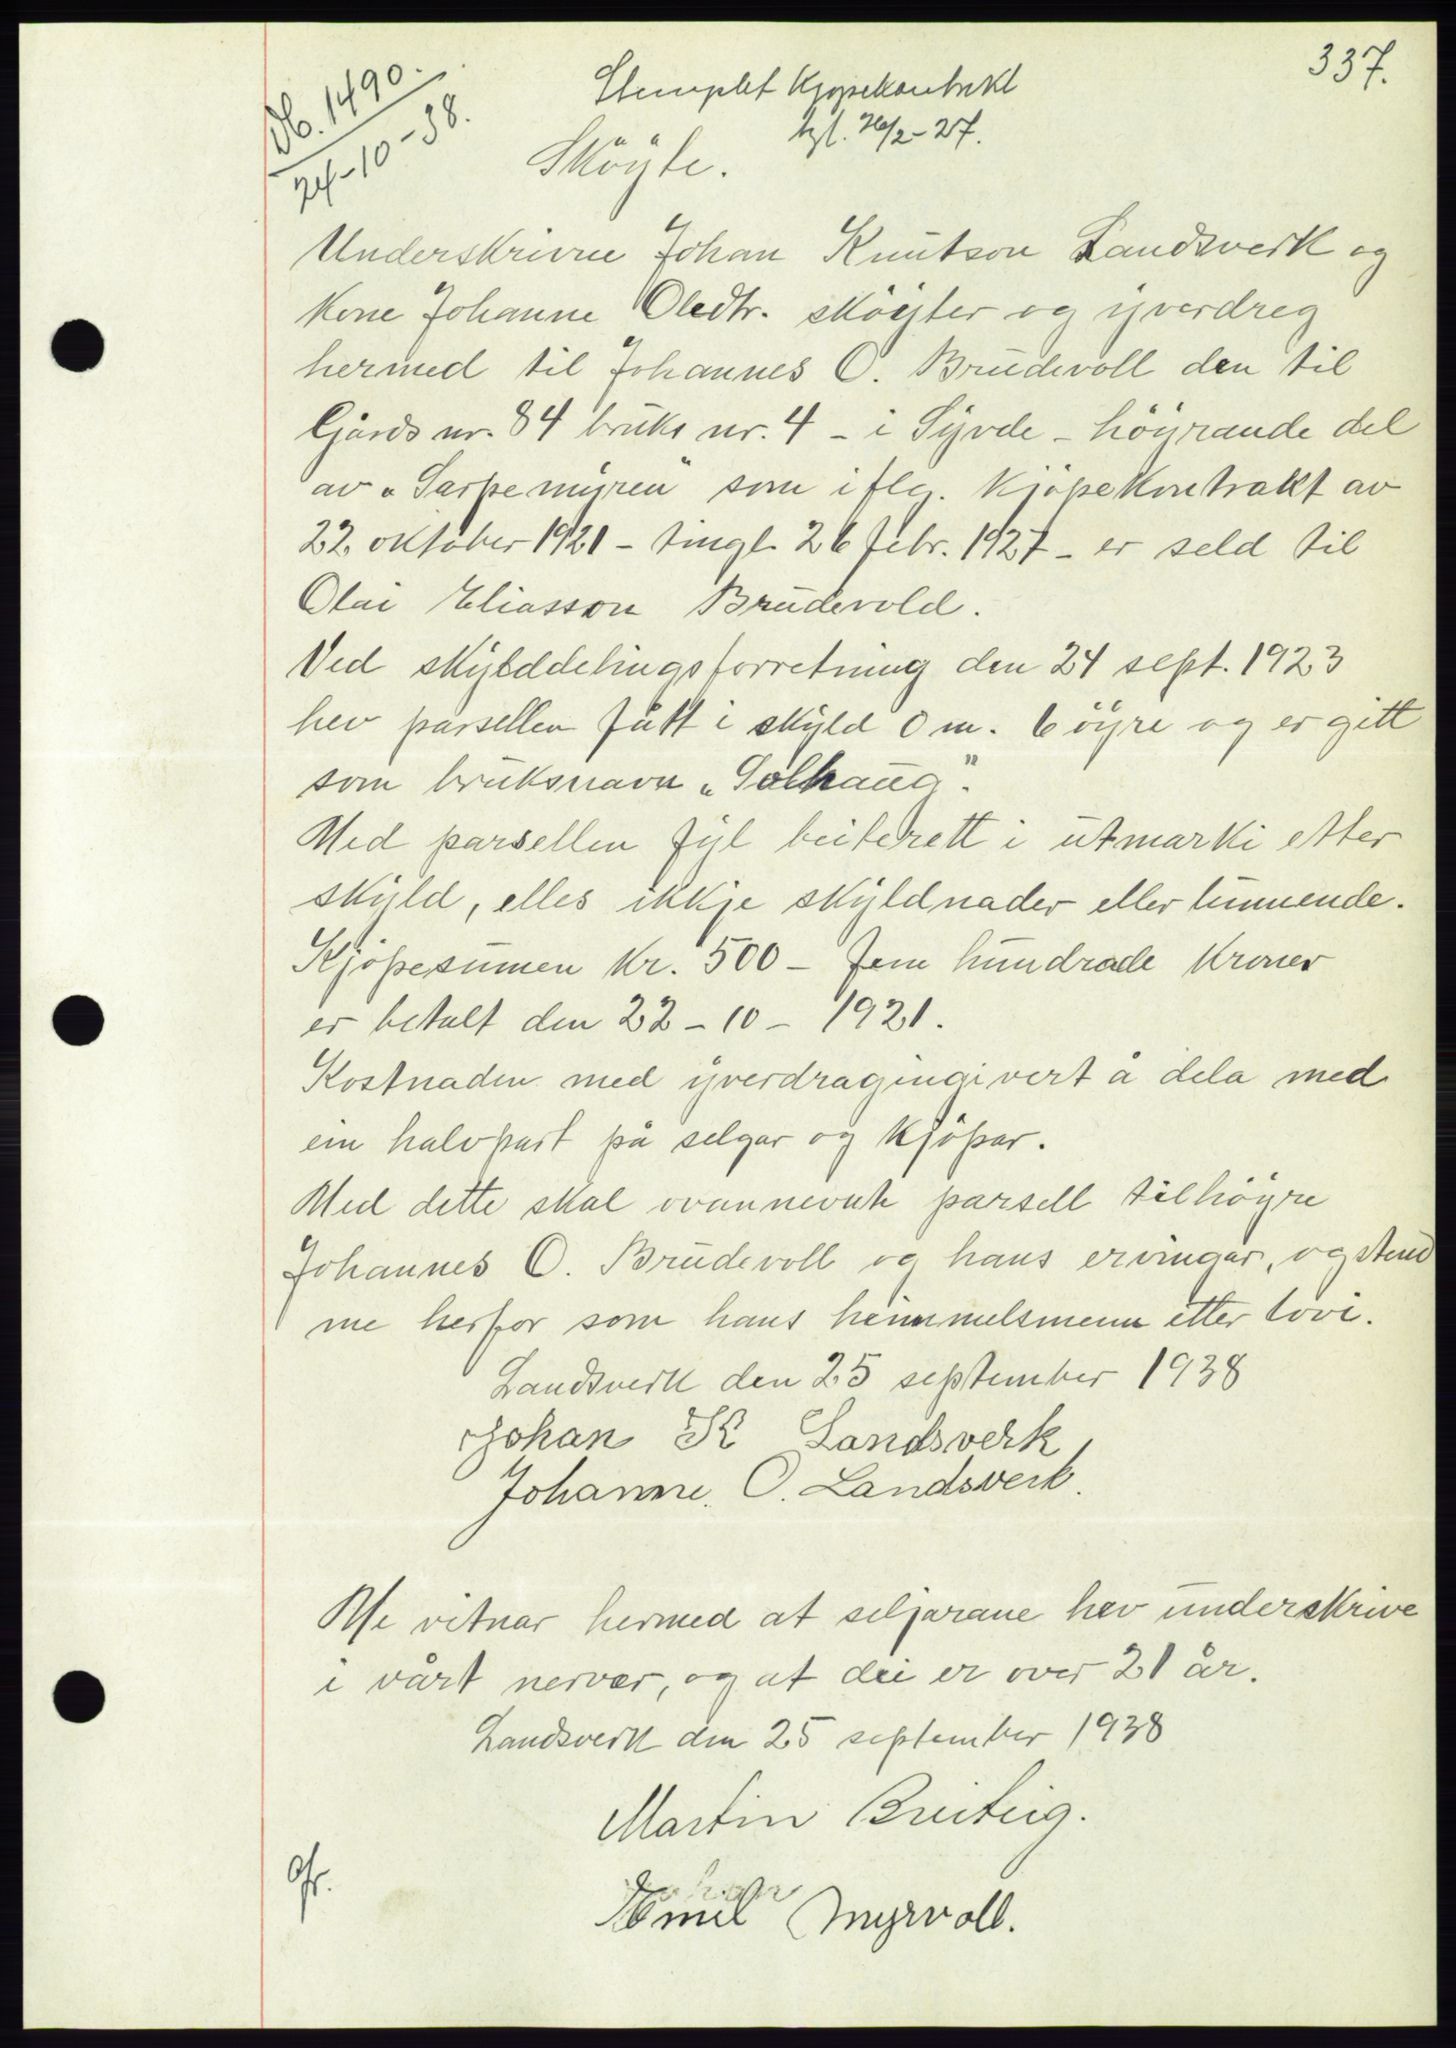 337.
Db. 1490.
24-10-38.
Stemplet Kjøpekontrakt
tgl. 26/2-27.
Sköyte.
Underskrivne Johan Knutson Landsverk og
Kone Johanne Oledtr. sköyter og yverdreg
hermed til Johannes O. Brudevoll den til
Gårds nr. 84 bruks nr. 4 - i Syvde - höyrande del
av "Sarpemyren" som iflg. Kjöpekontrakt av
22 oktober 1921 - tingl. 26 febr. 1927 - er seld til
Olai Eliasson Brudevold.
Ved skylddelingsforretning den 24 sept. 1923
hev parsellen fått i skyld 0 m. 6 öyre og er gitt
som bruksnavn "Solhaug".
Med parsellen fyl beiterett i utmarki etter
skyld, elles ikkje skyldnader eller lunnende.
Kjöpesumen kr. 500 - fem hundrade Kroner
er betalt den 22 - 10 - 1921.
Kostnaden med yverdragingi vert å dela med
ein halvpart på selgar og kjöpar.
Med dette skal ovannevnte parsell tilhöyre
Johannes O. Brudevoll og hans ervingar, og stend
me herfor som hans heimmelsmenn etter lovi.
Landsverk den 25 september 1938
Johan K Landsverk
Johanne. O. Landsverk.
Me vitnar hermed at seljarane hev underskrive
i vårt nervær, og at dei er over 21 år.
Landsverk den 25 september 1938
Martin Breiteig.
Emil Myrvoll.